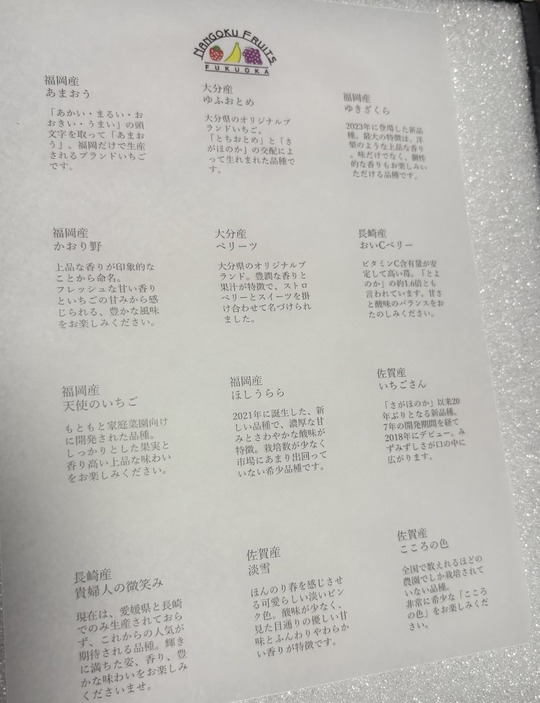 MANGOKU FRUITS
FUKUOKA
福岡産
あまおう
「あかい・まるい・お
おきい・うまい」の頭
文字を取って「あまお
う」。福岡だけで生産
されるブランドいちご
です。
大分産
ゆふおとめ
大分県のオリジナルブ
ランドいちご。
「とちおとめ」と「さ
がほのか」の交配によ
って生れまれた品種で
す。
福岡産
ゆきざくら
2023年に登場した新品
種。最大の特徴は、洋
梨のような上品な香り
。味だけでなく、個性
的な香りもお楽しみい
ただける品種です。
福岡産
かおり野
上品な香りが印象的な
ことから命名。
フレッシュな甘い香り
といちごの甘みから感
じられる、豊かな風味
をお楽しみください。
大分産
ベリーツ
大分県のオリジナルブ
ランド。豊潤な香りと
果汁が特徴で、ストロ
ベリーとスイーツを掛
け合わせて名づけられ
ました。
長崎産
おいCベリー
ビタミンC含有量が安
定して高い苺。「とよ
のか」の約1.6倍とも
言われています。甘さ
と酸味のバランスをお
たのしみください。
福岡産
天使のいちご
もともと家庭菜園向け
に開発された品種。
しっかりとした果実と
香り高い上品な味わい
をお楽しみください。
福岡産
ほしうらら
2021年に誕生した、新
しい品種で、濃厚な甘
みとさわやかな酸味が
特徴。栽培数が少なく
市場にあまり出回って
いない希少品種です。
佐賀産
いちごさん
「さがほのか」以来20
年ぶりとなる新品種。
7年の開発期間を経て
2018年にデビュー。み
ずみずしさが口の中に
広がります。
長崎産
貴婦人の微笑み
現在は、愛媛県と長崎
でのみ生産されており
ず、これからの人気が
期待される品種。輝き
に満ちた姿、香り、豊
かな味わいをお楽しみ
くださいませ。
佐賀産
淡雪
ほんのり春を感じさせ
る可愛らしい淡いピン
ク色。酸味が少なく、
見た目通りの優しい甘
味とふんわりやわらか
い香りが特徴です。
佐賀産
こころの色
全国で数えれるほどの
農園でしか栽培されて
いない品種。
非常に希少な「こころ
の色」をお楽しみくだ
さい。